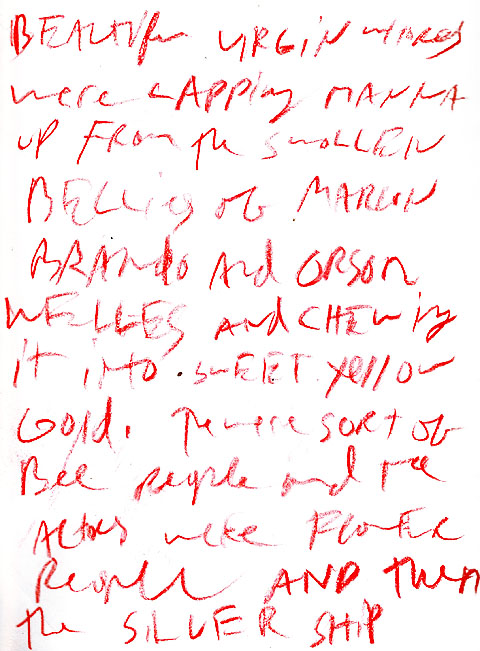 BEAUTIFUL VIRGIN
were LAPPing MANNA
UP FROM the SWOLLEN
BELLies of MARLON
BRANdo And ORSON
WELLES and CHEWing
it into sweet yellow
Gold. were SORT of
Bee people and the
ACTORS were FLOWER
PEOPLE AND then
the SILVER SHIP